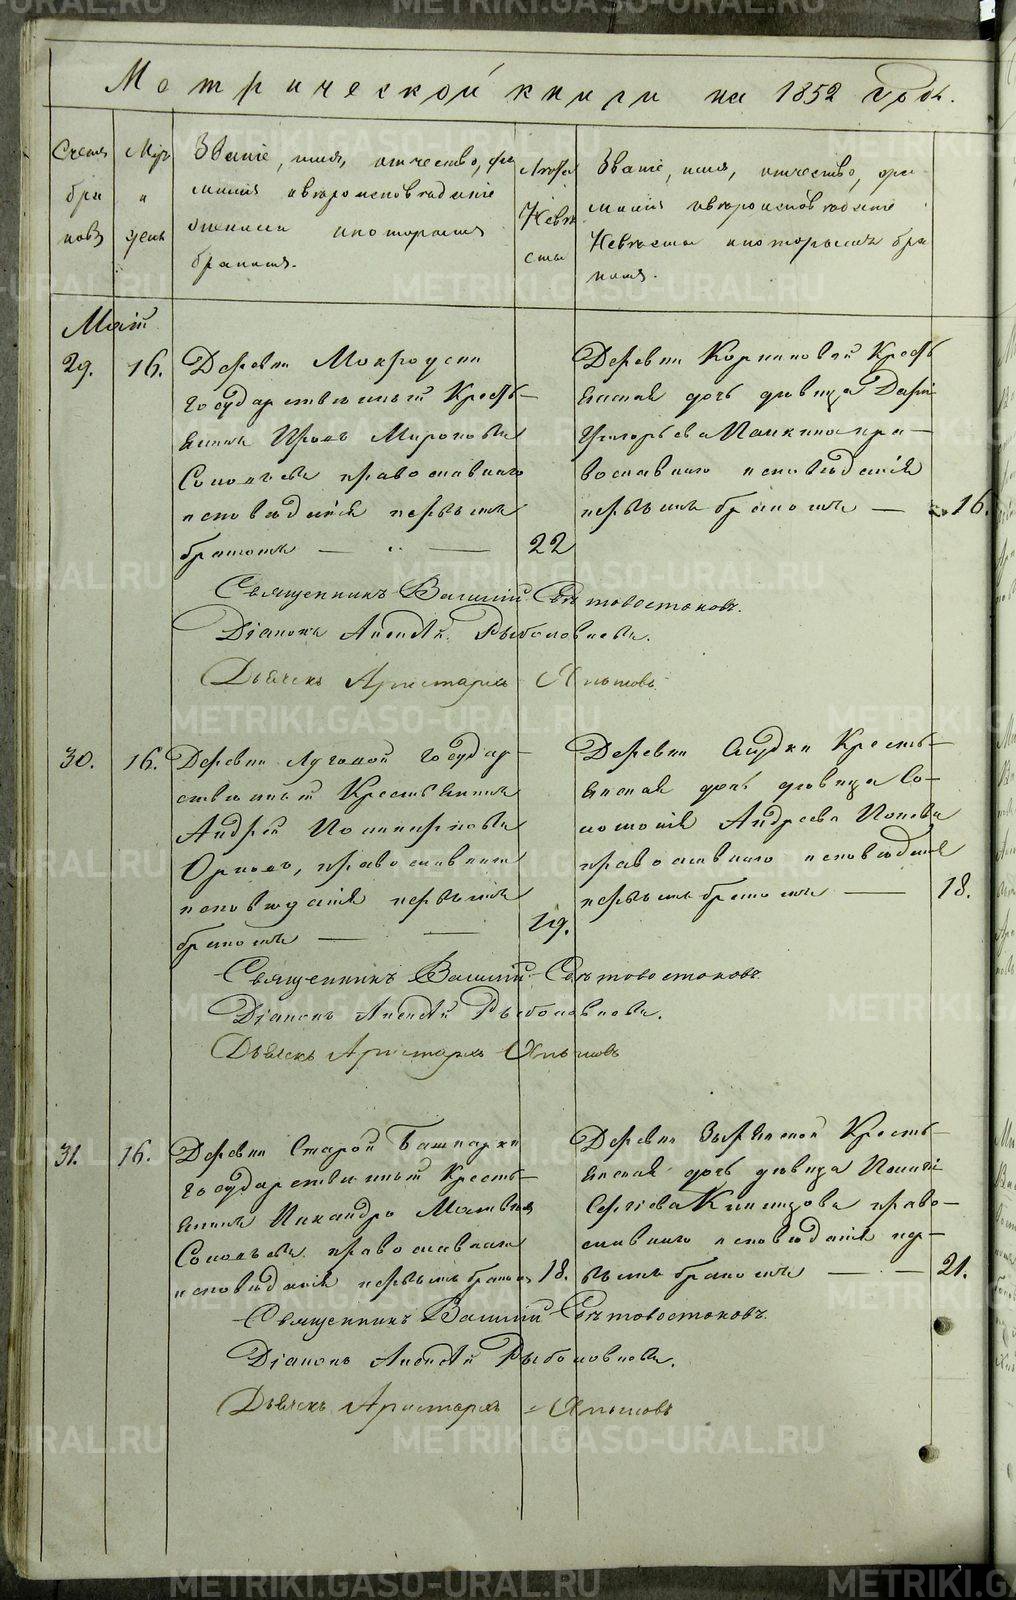 Метрической книги на 1852 годъ.
Счетъ браковъ
Мѣсяцъ и день
Званіе, имя, отчество, фамилія и вѣроисповѣданіе жениха и которымъ бракомъ.
Лѣта Невѣсты
Званіе, имя, отчество, фамилія и вѣроисповѣданіе Невѣсты и которымъ бракомъ.
Маій
29. 16.
Деревни Мокроуски
государственный Кресть-
янинъ Мироновъ
православнаго
исповѣданія первымъ
бракомъ — „ — 22
Деревни Кресть
янская дочь дѣвица
Григорьева пра-
вославнаго исповѣданія
первымъ бракомъ — 16.
Священникъ Василій Свѣтовостоковъ.
Діаконъ Алексѣй Рыболовлевъ.
Дьячекъ Аристархъ
30. 16.
Деревни Луговой Государ-
ственный Крестьянинъ
Андрей
православнаго
исповѣданія первымъ
бракомъ — — 19.
Деревни Кресть-
янская дочь дѣвица Со-
ломонія Андреева Попова
православнаго исповѣданія
первымъ бракомъ — 18.
Священникъ Василій Свѣтовостоковъ.
Діаконъ Алексѣй Рыболовлевъ.
Дьячекъ Аристархъ
31. 16.
Деревни Старой Башкарки
государственный Кресть-
янинъ Никандръ Матвѣевъ
православнаго
исповѣданія первымъ бракомъ 18.
Деревни Зырянской Кресть-
янская дочь дѣвица
Сергіева право-
славнаго исповѣданія пер-
вымъ бракомъ — — 21.
Священникъ Василій Свѣтовостоковъ.
Діаконъ Алексѣй Рыболовлевъ.
Дьячекъ Аристархъ
METRIKI.GASO-URAL.RU